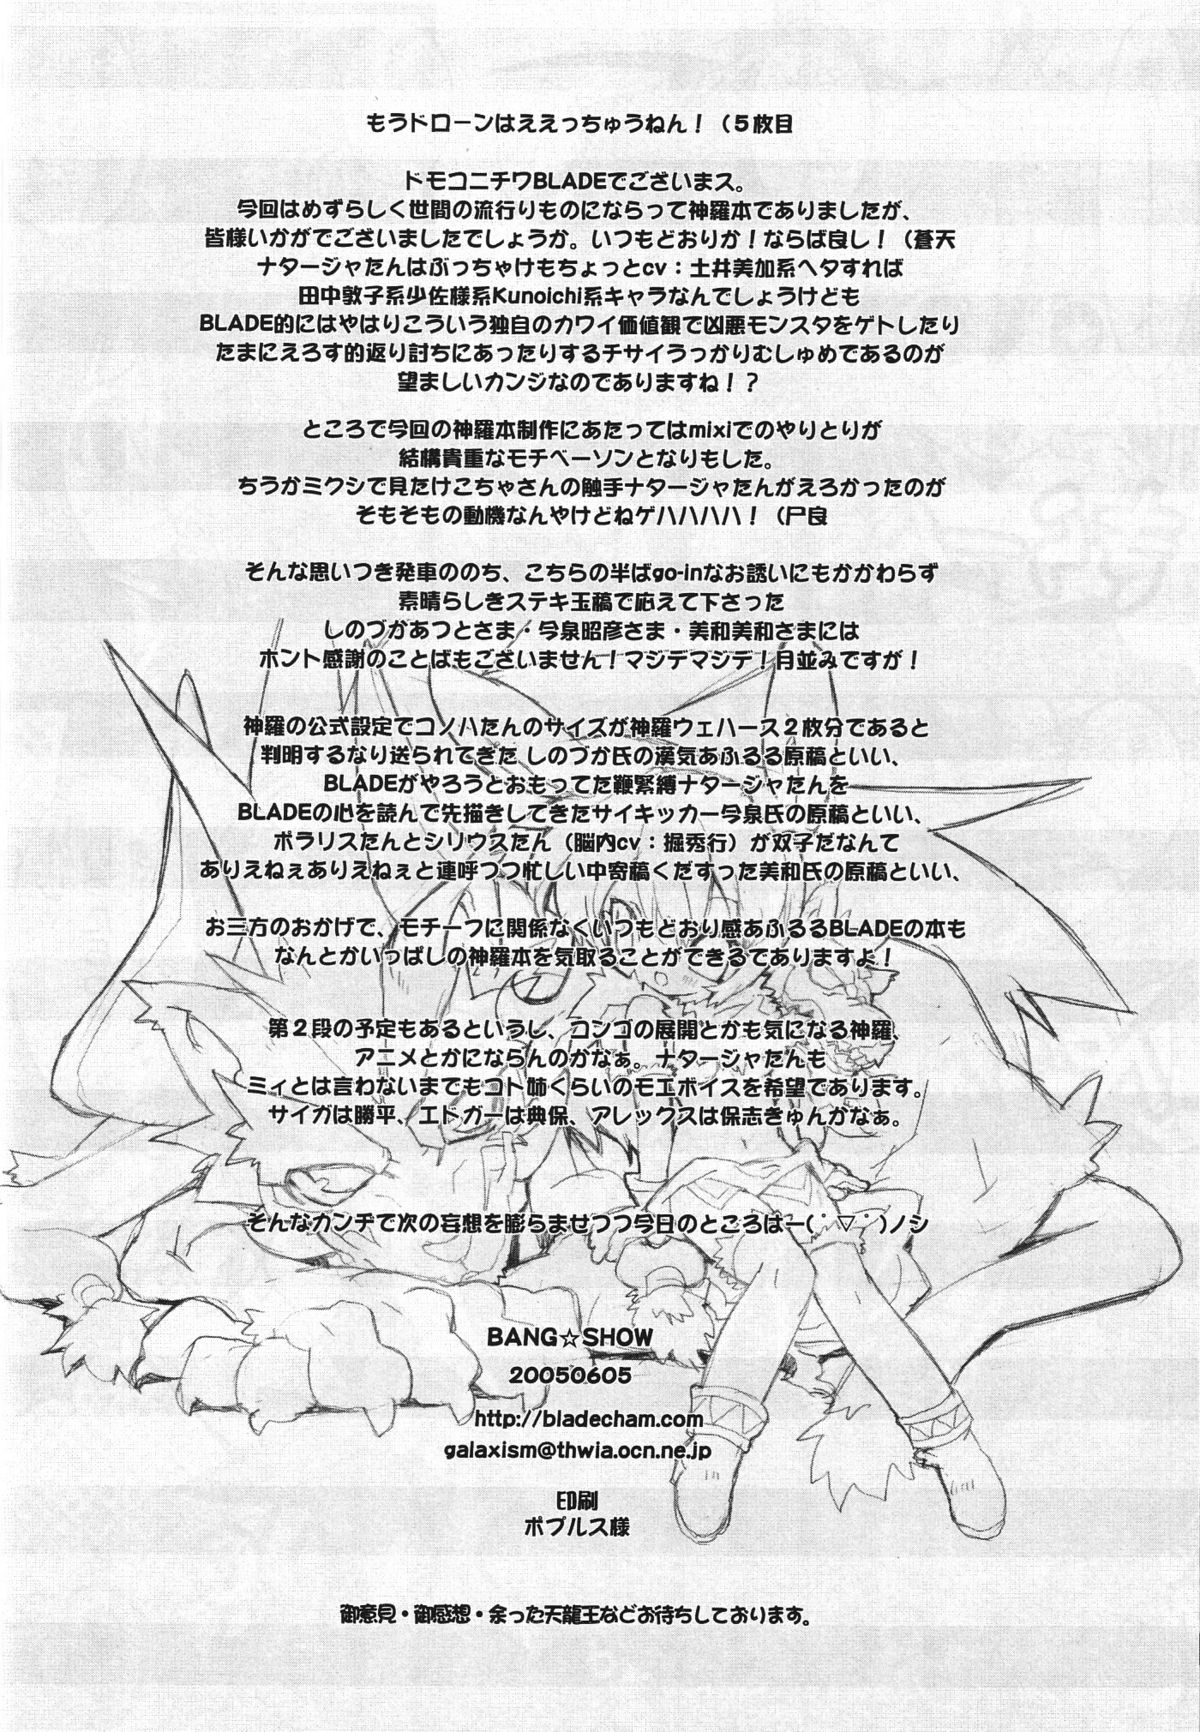 もうドローンはええっちゅうねん！（５枚目
ドモコニチワBLADEでございまス。
今回はめずらしく世間の流行りものにならって神羅本でありましたが、
皆様いかがでございましたでしょうか。いつもどおりか！ならば良し！（蒼天
ナタージャたんはぶっちゃけもちょっとcv：土井美加系ヘタすれば
田中敦子系少佐様系Kunoichi系キャラなんでしょうけども
BLADE的にはやはりこういう独自のカワイイ価値観で凶悪モンスタをゲトしたり
たまにえろす的返り討ちにあったりするチサイうっかりむしゅめであるのが
望ましいカンジなのでありますね！？
ところで今回の神羅本制作にあたってはmixiでのやりとりが
結構貴重なモチベーソンとなりもした。
ちうかミクシで見たけこちゃさんの触手ナタージャたんがえろかったのが
そもそもの動機なんやけどねゲハハハハ！（尸良
そんな思いつき発車ののち、こちらの半ばgo-inなお誘いにもかかわらず
素晴らしきステキ玉稿で応えて下さった
しのづかあつとさま・今泉昭彦さま・美和美和さまには
ホント感謝のことばもございません！マジデマジデ！月並みですが！
神羅の公式設定でコノハたんのサイズが神羅ウェハース２枚分であると
判明するなり送られてきた しのづか氏の漢気あふるる原稿といい、
BLADEがやろうとおもってた鞭緊縛ナタージャたんを
BLADEの心を読んで先描きしてきたサイキッカー今泉氏の原稿といい、
ポラリスたんとシリウスたん（脳内cv：掘秀行）が双子だなんて
ありえねぇありえねぇと連呼しつつ忙しい中寄稿くだすった美和氏の原稿といい、
お三方のおかげで、モチーフに関係なくいつもどおり感あふるるBLADEの本も
なんとかいっぱしの神羅本を気取ることができるでありますよ！
第２段の予定もあるというし、コンゴの展開とかも気になる神羅、
アニメとかにならんのかなぁ。ナタージャたんも
ミィとは言わないまでもコト姉くらいのモエボイスを希望であります。
サイガは勝平、エドガーは典保、アレックスは保志きゅんかなぁ。
そんなカンヂで次の妄想を膨らませつつ今日のところはー(˙▽˙)ノシ
BANG☆SHOW
20050605
http://bladecham.com
galaxism@thwia.ocn.ne.jp
印刷
ポプルス様
御意見・御感想・余った天龍王などお待ちしております。